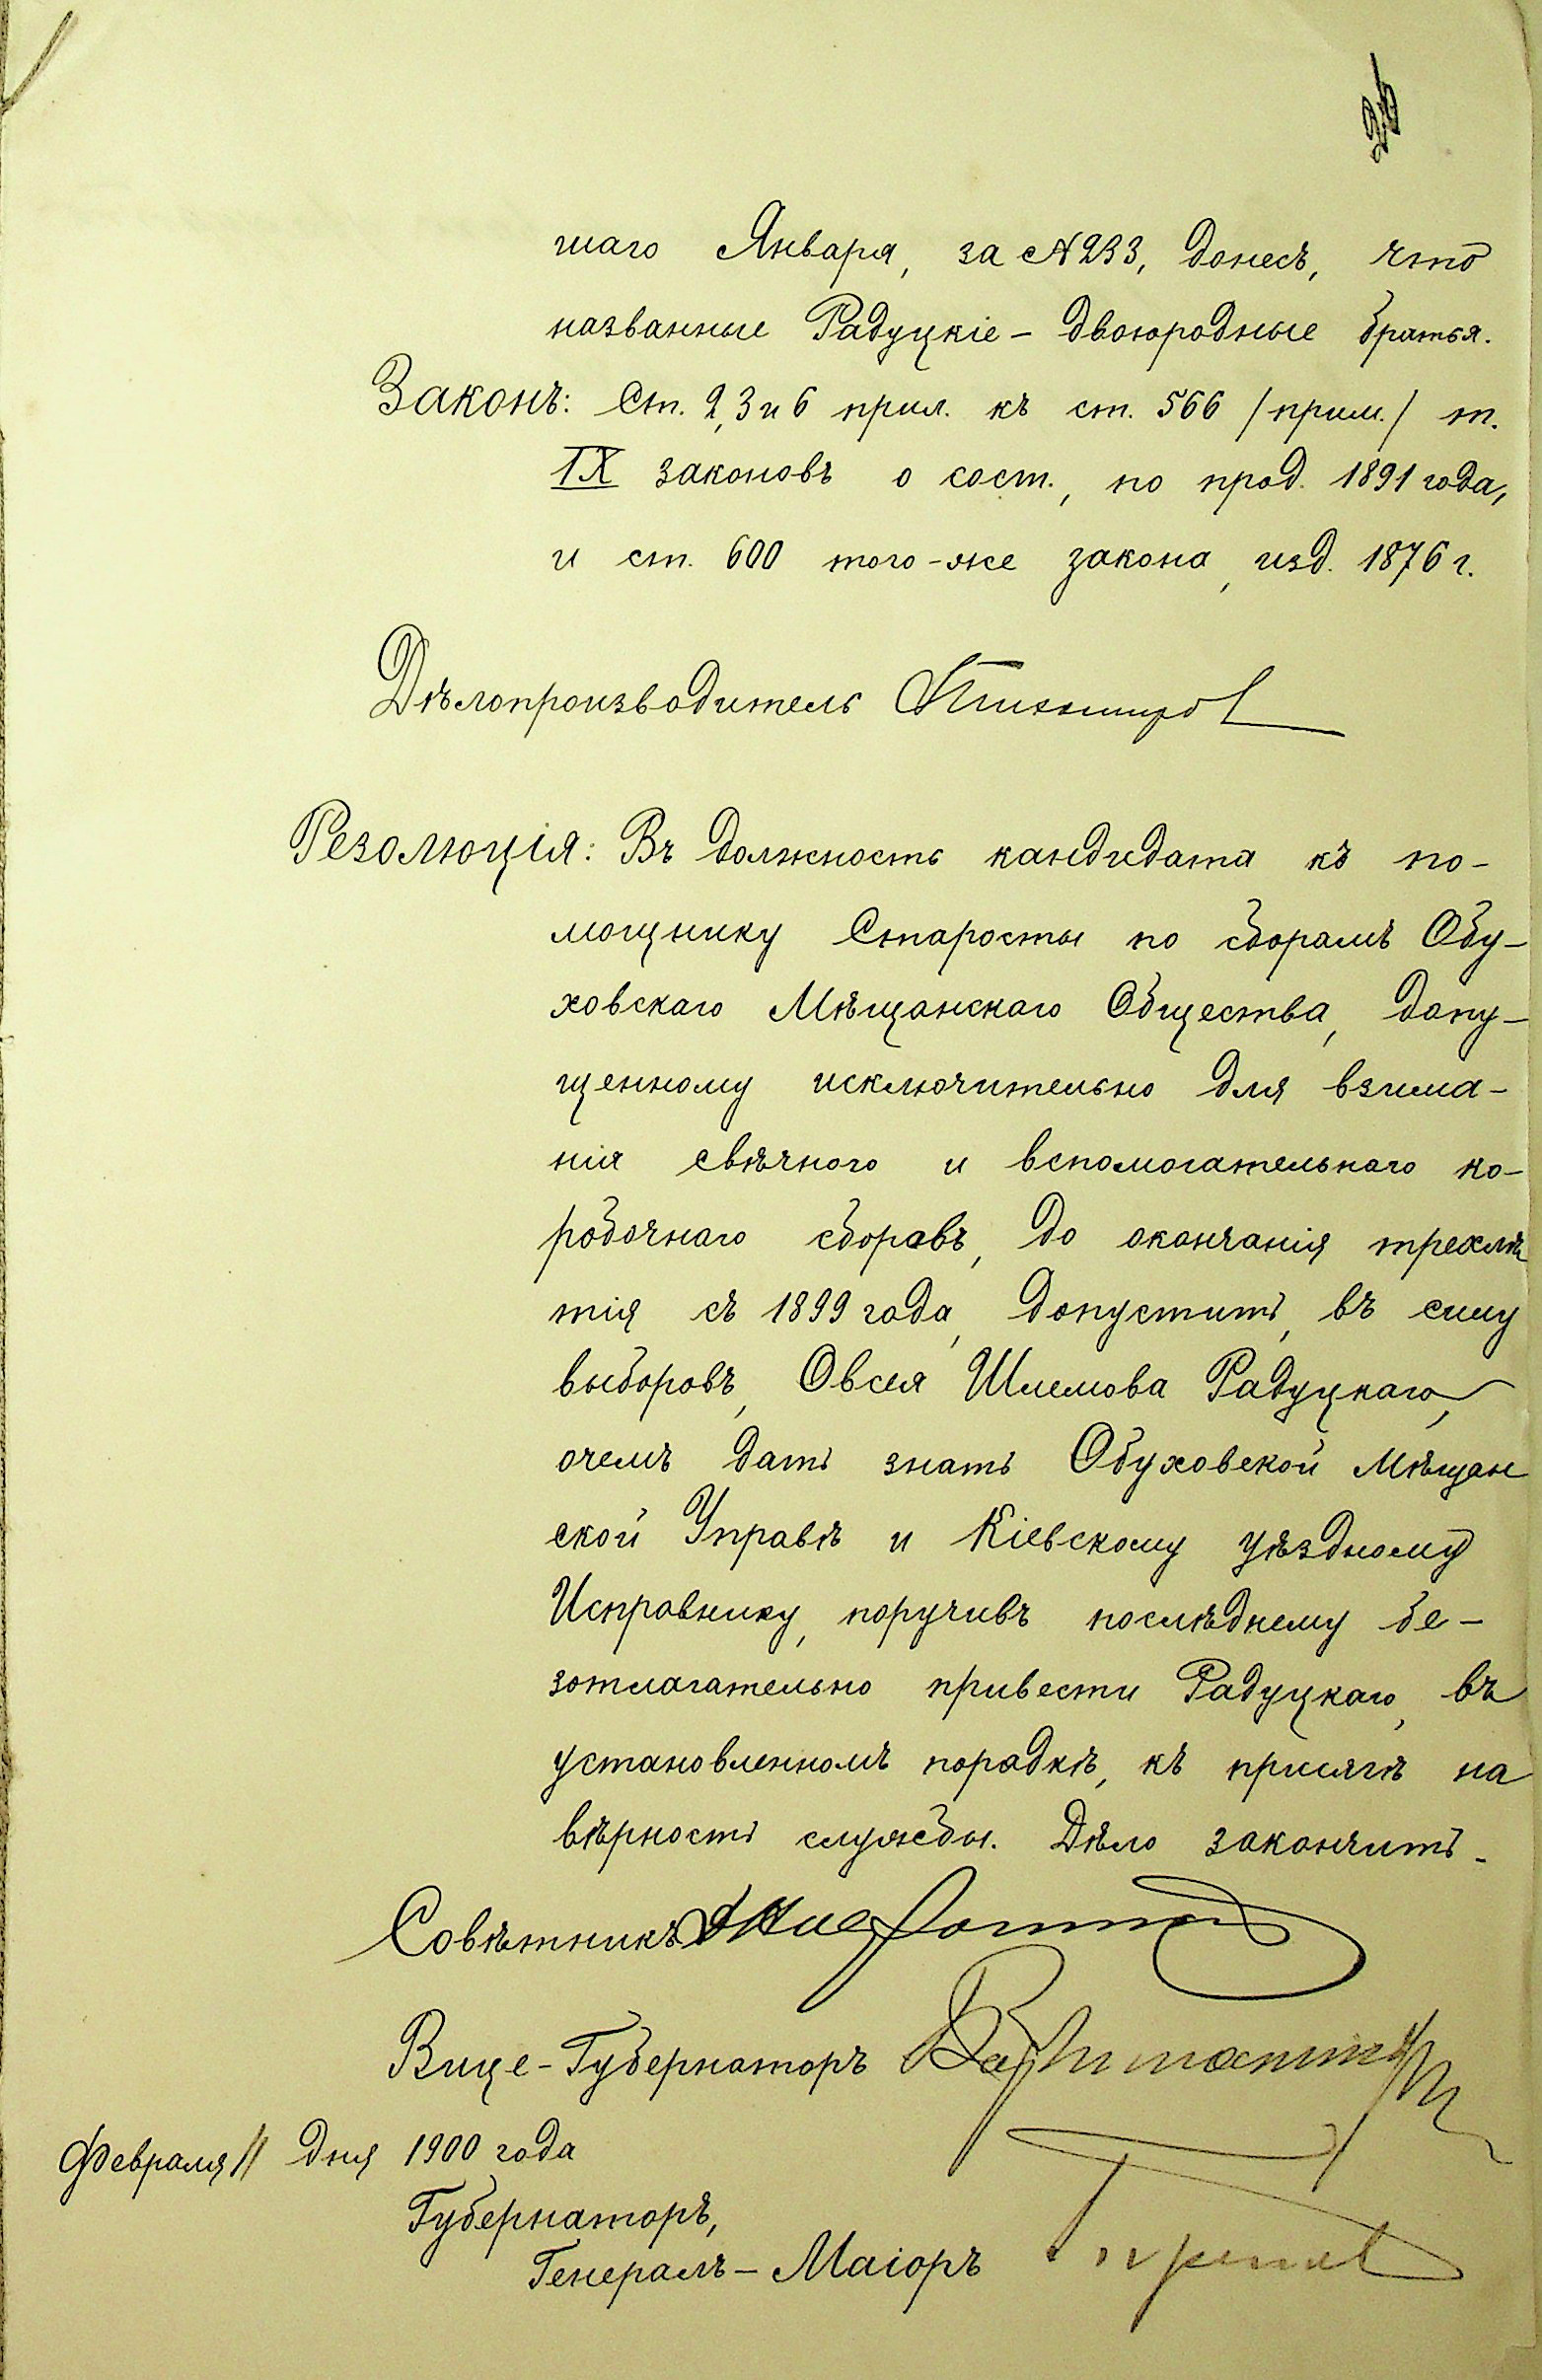 шаго Января, за №233, донесъ, что
названные Радуцкіе – двоюродные братья.
Законъ: Ст. 2,3 и 6 прил. къ ст. 566 /прим./ т.
IX законовъ о сост., по прод. 1891 года,
и ст. 600 того-же закона, изд. 1876 г.
Дѣлопроизводитель
Резолюція: Въ должность кандидата къ по-
мощнику Старосты по сборамъ Обу-
ховскаго Мѣщанскаго Общества, допу-
щенному исключительно для взима-
нія свѣчного и вспомогательнаго ко-
робочнаго сборовъ, до окончанія трехлѣ
тія съ 1899 года, допустить, въ силу
выборовъ, Овсея Шлемова Радуцкаго,
о чемъ дать знать Обуховской Мѣщан
ской Управѣ и Кіевскому уѣздному
Исправнику, поручивъ послѣднему бе-
зотлагательно привести Радуцкаго, въ
установленномъ порядкѣ, къ присягѣ на
вѣрность службы. Дѣло закончить.
Совѣтникъ
Вице-Губернаторъ
Февраля 11 дня 1900 года
Губернаторъ,
Генералъ-Маіоръ